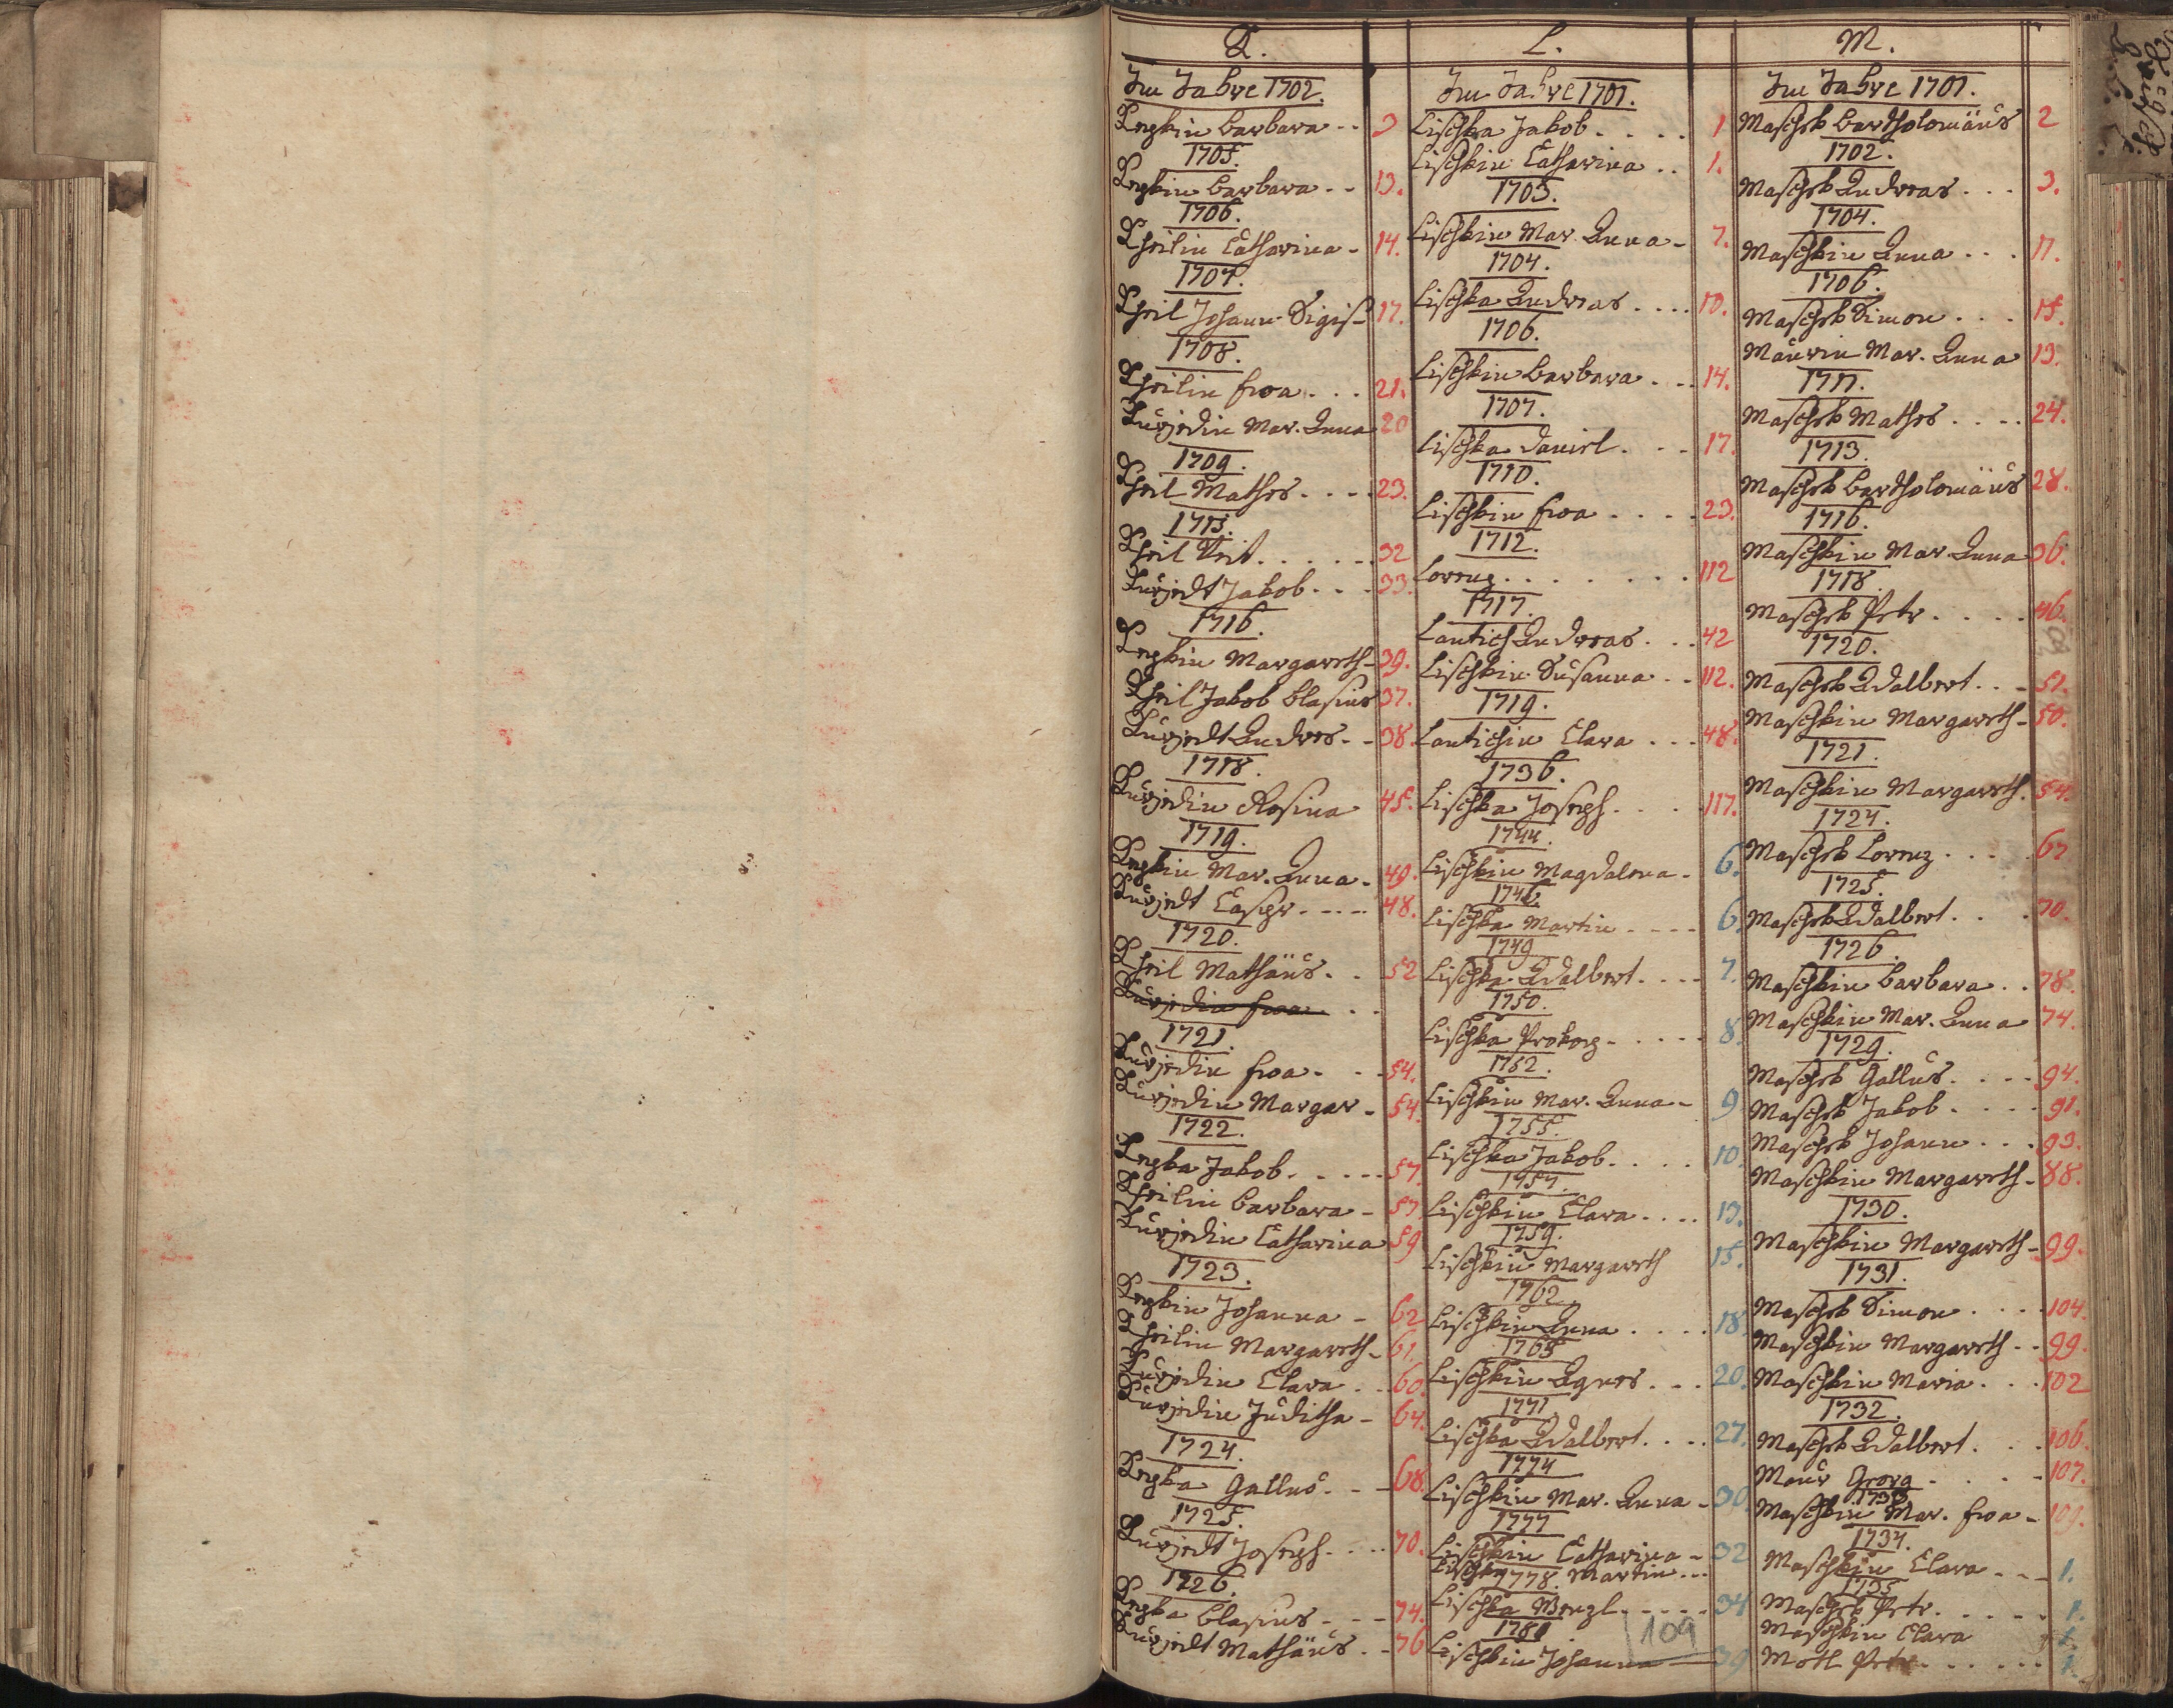 K.
Im Jahre 1702.
Kepkin Barbara - - 3
1705.
Kepkin Barbara - - 13.
1706.
Kheilin Catharina - 14.
1707.
Kheil Johann Sigis- 17.
1708.
Kheilin Eva . . . 21.
Kurzedin Mar. Anna 20
1709.
Kheil Mathes . . . . 23.
1715.
Kheil Veit . . . . . . 32
Kurzedt Jakob . . . 33.
1716.
Kepkin Margareth - 39.
Kheil Jakob Blasius 37.
Kurzedt Andres - - 38.
1718.
Kurzedin Rosina 45.
1719.
Kepkin Mar. Anna - 49.
Kurzedt Casper - - - - 48.
1720.
Kheil Mathäus . . 52
Kurzedin Eva . . .
1721.
Kurzedin Eva . . . 54.
Kurzedin Margar - 54.
1722.
Kepka Jakob . . . . . 57.
Kheilin Barbara - 57
Kurzedin Catharina 59
1723.
Kepkin Johanna - 62
Kheilin Margareth - 61.
Kurzedin Clara . . 60.
Kurzedin Juditha - 64.
1724.
Kepka Gallus . - - 68.
1725.
Kurzedt Joseph . . . . 70.
1726.
Kepka Blasius . - - 74.
Kurzedt Mathäus . - 76
L.
Im Jahre 1701.
Lischka Jakob . . . . 1
Lischkin Catharina . . 1.
1703.
Lischkin Mar. Anna - 7.
1704.
Lischka Andreas . . . . 10.
1706.
Lischkin Barbara . . . 14.
1707.
Lischka Daniel . . . 17.
1710.
Lischkin Eva . . . . 23.
1712.
Lorenz . . . . . . . . 112
1717.
Lantich Andreas . . . 42
Lischkin Susanna . . 112.
1719.
Lantichin Clara . . . 48.
1736.
Lischka Joseph . . . . 117.
1744.
Lischkin Magdalena - 6.
1746.
Lischka Martin - - - - 6.
1749
Lischka Adalbert . . . . 7.
1750.
Lischka Prokop - . . . . 8.
1752.
Lischkin Mar. Anna - 9
1755.
Lischka Jakob . . . . 10.
1757.
Lischkin Clara . . . . 13.
1759.
Lischkin Margareth 15.
1762.
Lischkin Anna . . . . 18.
1765
Lischkin Agnes . . . 20.
1771
Lischka Adalbert . . . . 27.
1774
Lischkin Mar. Anna - 30
1777
Lischkin Catharina - 32
Lischka Martin . . .
1778.
Lischka Wenzl . . . . . 34
1781.
Lischkin Johanna 39
109
M.
Im Jahre 1701.
Maschek Bartholomäus 2
1702.
Maschek Andreas . . . 3.
1704.
Maschkin Anna . . . 11.
1706.
Maschek Simon . . . 15.
Maurin Mar. Anna 13.
1711.
Maschek Mathes . . . . 24.
1713.
Maschek Bartholomäus 28.
1716.
Maschkin Mar. Anna 36.
1718.
Maschek Petr . . . . . 46.
1720.
Maschek Adalbert . . - 51.
Maschkin Margareth - 50.
1721.
Maschkin Margareth. 54.
1724.
Maschek Lorenz . . . . 67
1725.
Maschek Adalbert . . . 70.
1726.
Maschkin Barbara . . 78.
Maschkin Mar. Anna 74.
1729.
Maschek Gallus . . . . 94.
Maschek Jakob . . . . 91.
Maschek Johann . . . 93.
Maschkin Margareth - 88.
1730.
Maschkin Margareth - 99.
1731.
Maschek Simon . . . . 104.
Maschkin Margareth . . 99.
Maschkin Maria . . . 102
1732.
Maschek Adalbert . . . 106.
Maur Georg . . . . . 107.
1733
Maschkin Mar. Eva - 109.
1734.
Maschkin Clara . . - 1.
1735
Maschek Petr . . . . . 1.
Maschkin Clara 1.
Motl Petr . . . . . . 1.